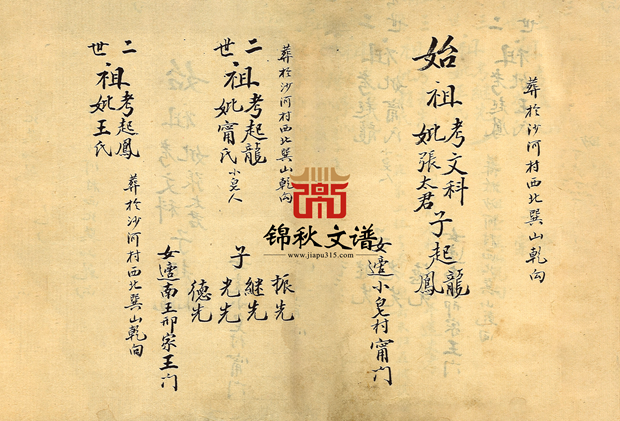 葬於沙河村西北巽山乾向
始祖考文科
妣張太君
子起龍
鳳
女適小皂村甯门
葬於沙河村西北巽山乾向
二世祖考起龍
妣甯氏小皂人
子
振先
継先
光先
德先
二世祖考起鳳
妣王氏
葬於沙河村西北巽山乾向
女適南王邢宗王门
锦秋文谱
www.jiapu315.com